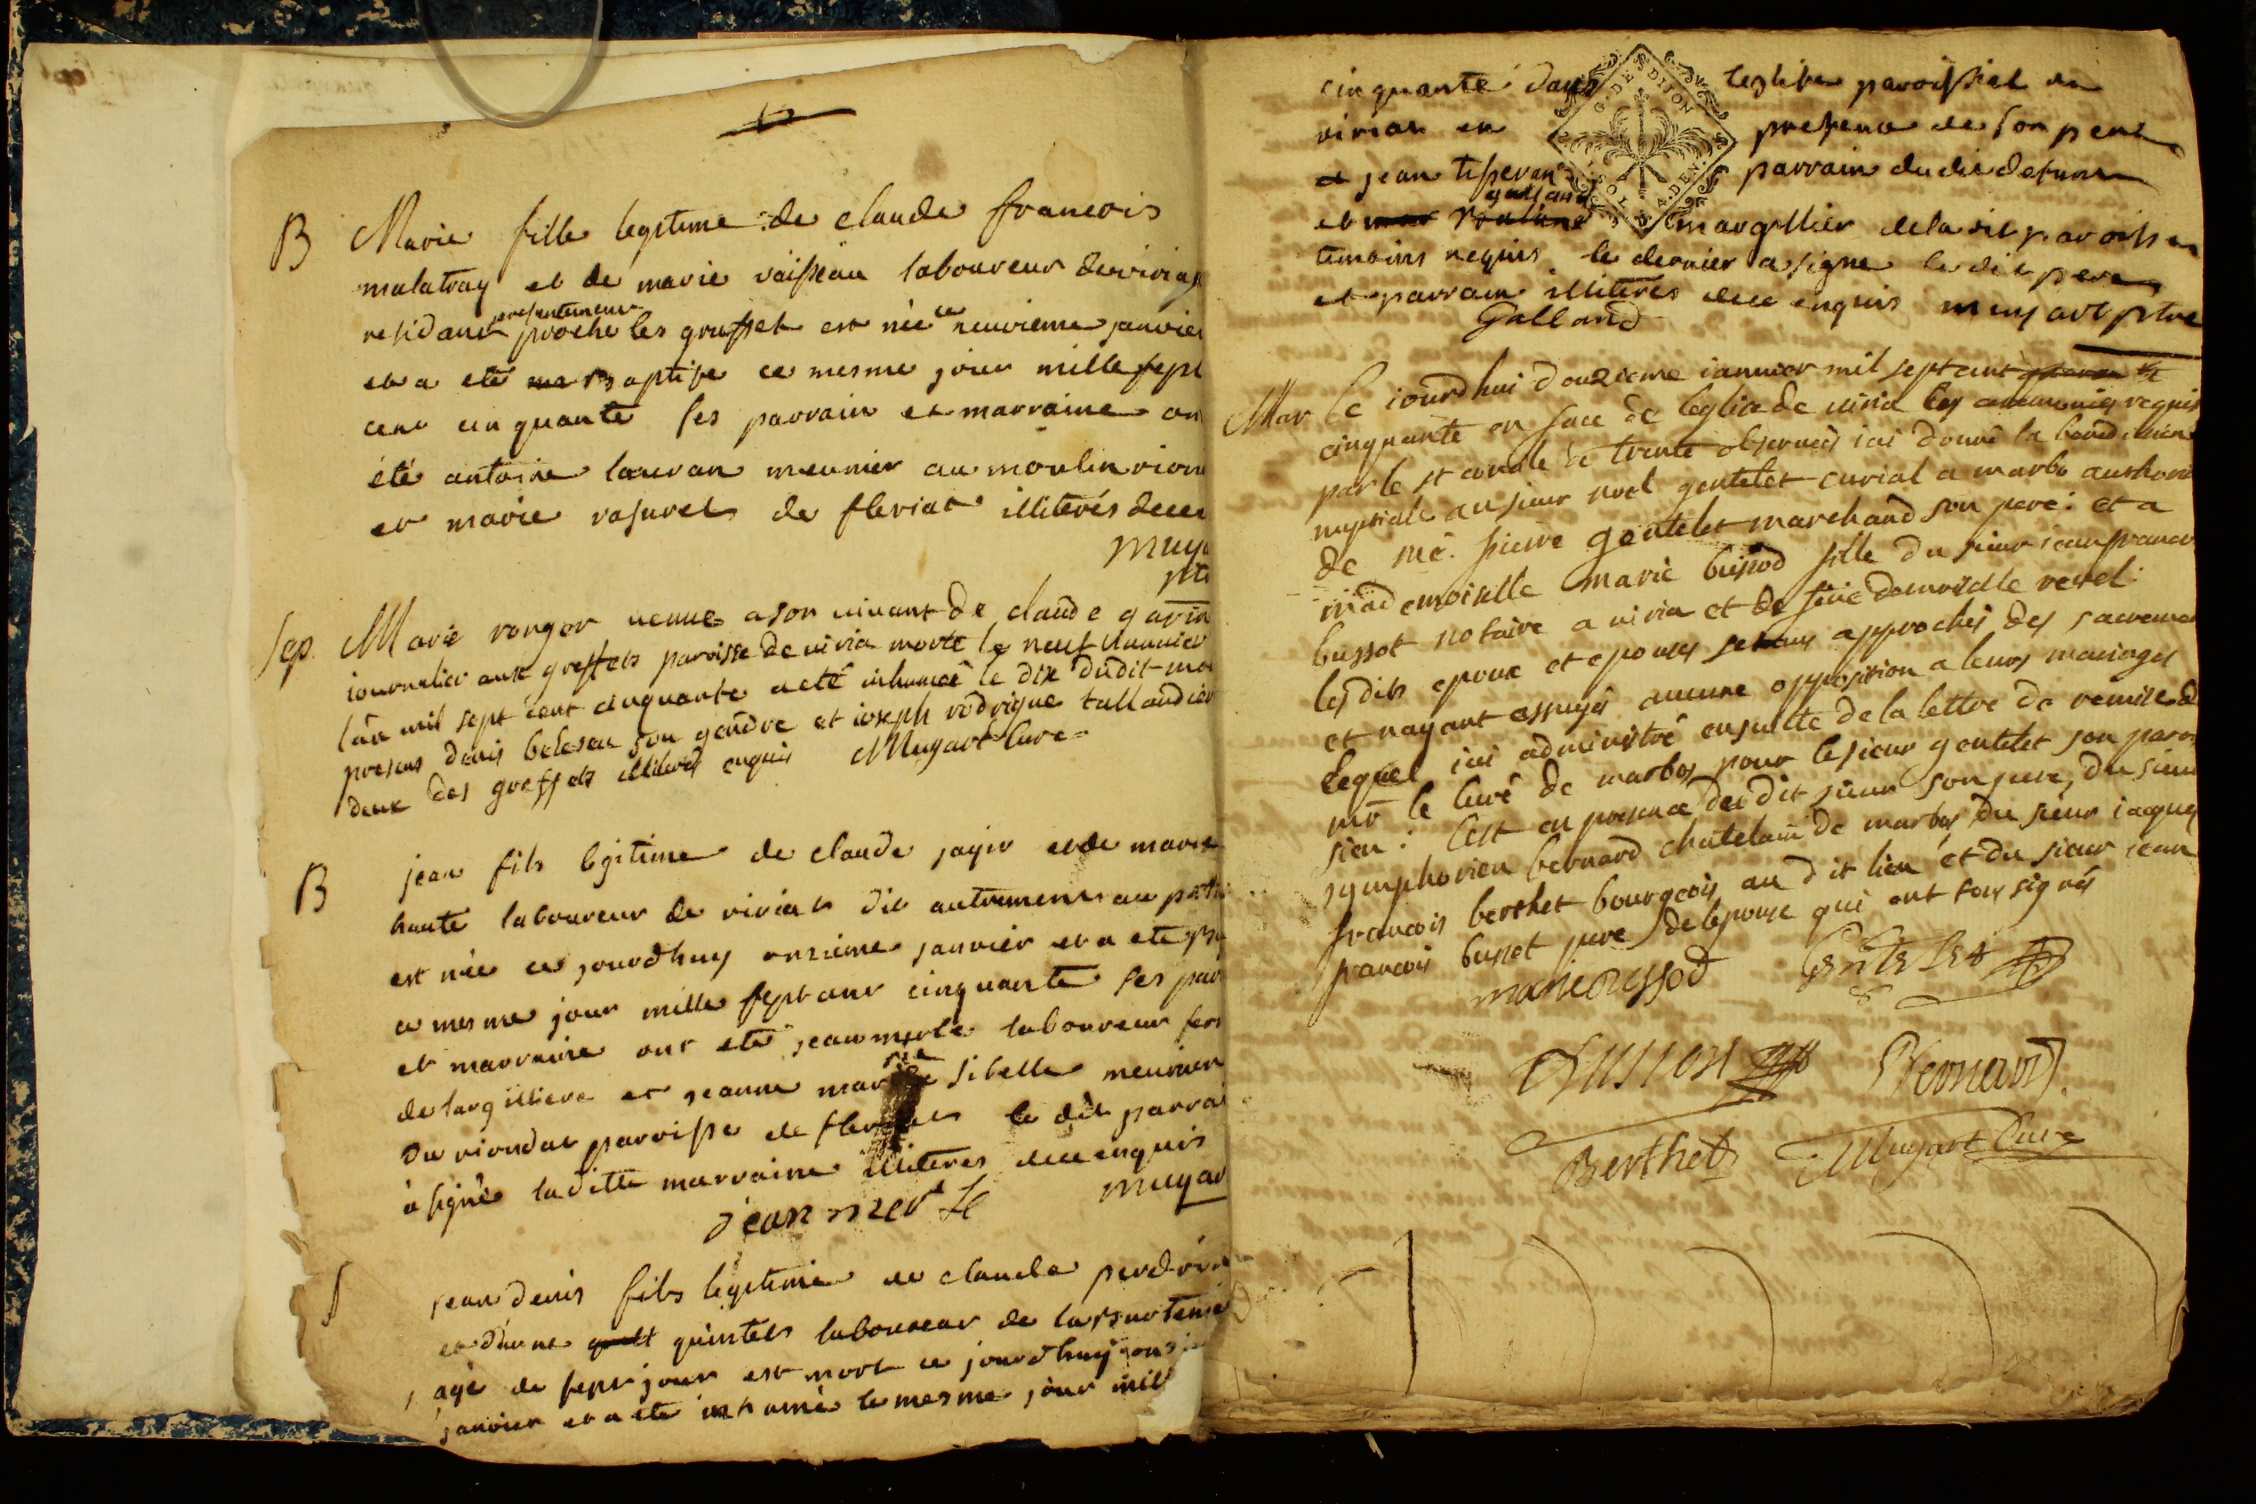 B Marie fille legitime de claude francois
malatray et de marie vaisseau laboureur de viria
presentement
residant proche les greffet est née le neuvieme janvier
et a eté baptise ce mesme jour mille sept
cent cinquante ses parrain et marraine on
été antoine lauran meunier au moulin rion
et marie rasurel de fleriat illiterés de ce
muya
ptr
Sep. Marie ronger venue a son vivant de claude garin
journalier aux greffets paroisse de viria morte le neuf januier
l'an mil sept cent cinquante a eté inhumée le dix dudit mo
presens denis beleseau son gendre et ioseph rodrigue tallandier
deux des greffets illiterés enquis Muyart Curé
B jean fils legitime de claude jayr et de marie
haute laboureur de viriat dit autrement au
est née ce jourdhuy onzieme janvier et a eté
ce mesme jour mille sept cent cinquante ses par
et marraine ont eté jean merle laboureur
de largilliere et jeanne marie sibelle meunier
du riondat paroisse de le dit parrai
a signé laditte marraine illiteres de ce enquis
jean merle muyar
S jean denis fils legitime de claude perdri
et d'anne quintet laboureur de la
agé de sept jour est mort ce jourdhuy
janvier et a eté inhumé le mesme jour mill
cinquante dans leglise paroissial de
viriat en presence de son pere
et jean tisseran parrain dudit defunt
galland
et margillier de la dit paroisse
temoins requis le dernier a signé le dit pere
et parrain illiterés de ce enquis muyart ptre
Galland
Mar Ce iourdhui douzieme iannier mil sept cent
cinquante en face de leglise de viria les ceremonies requis
par le st concile de trente observées iai donné la benediction
nuptiale au sieur noel gentelet curial a marbo
de me. pierre gentelet marchand son pere: et a
mademoiselle marie bussod fille du sieur jean francoi
bussot notaire a viria et de feüe demoiselle revel:
lesdits epoux et epouses approchés des sacremen
et nayant essuyés aucune opposition a leurs mariages
lequel iai administré ensuitte de la lettre de remise d
mr le curé de marbos pour le sieur gentelet son paroi
sien: Cest en presence du dit sieur son pere, du sieur
symphorien bernard chatelain de marbos du sieur iacques
francois berthet bourgeois au dit lieu et du sieur iean
francois bussot pere de lepouse qui ont tous signés
marie bussod Gentelet
Bussod Bernard.
Berthet Muyart Curé
G. DE DIJON